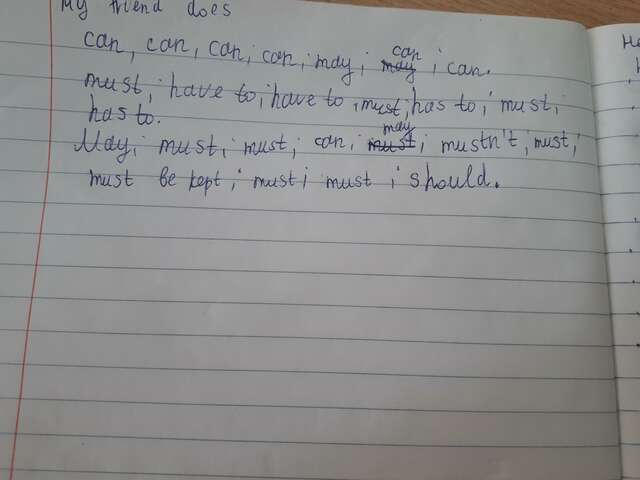 My friend does
can, can, can, can, may, can
may, can.
must, have to, have to, must, has to, must,
has to.
May, must, must, can, may
must, mustn't, must,
must be kept, must, must, should.